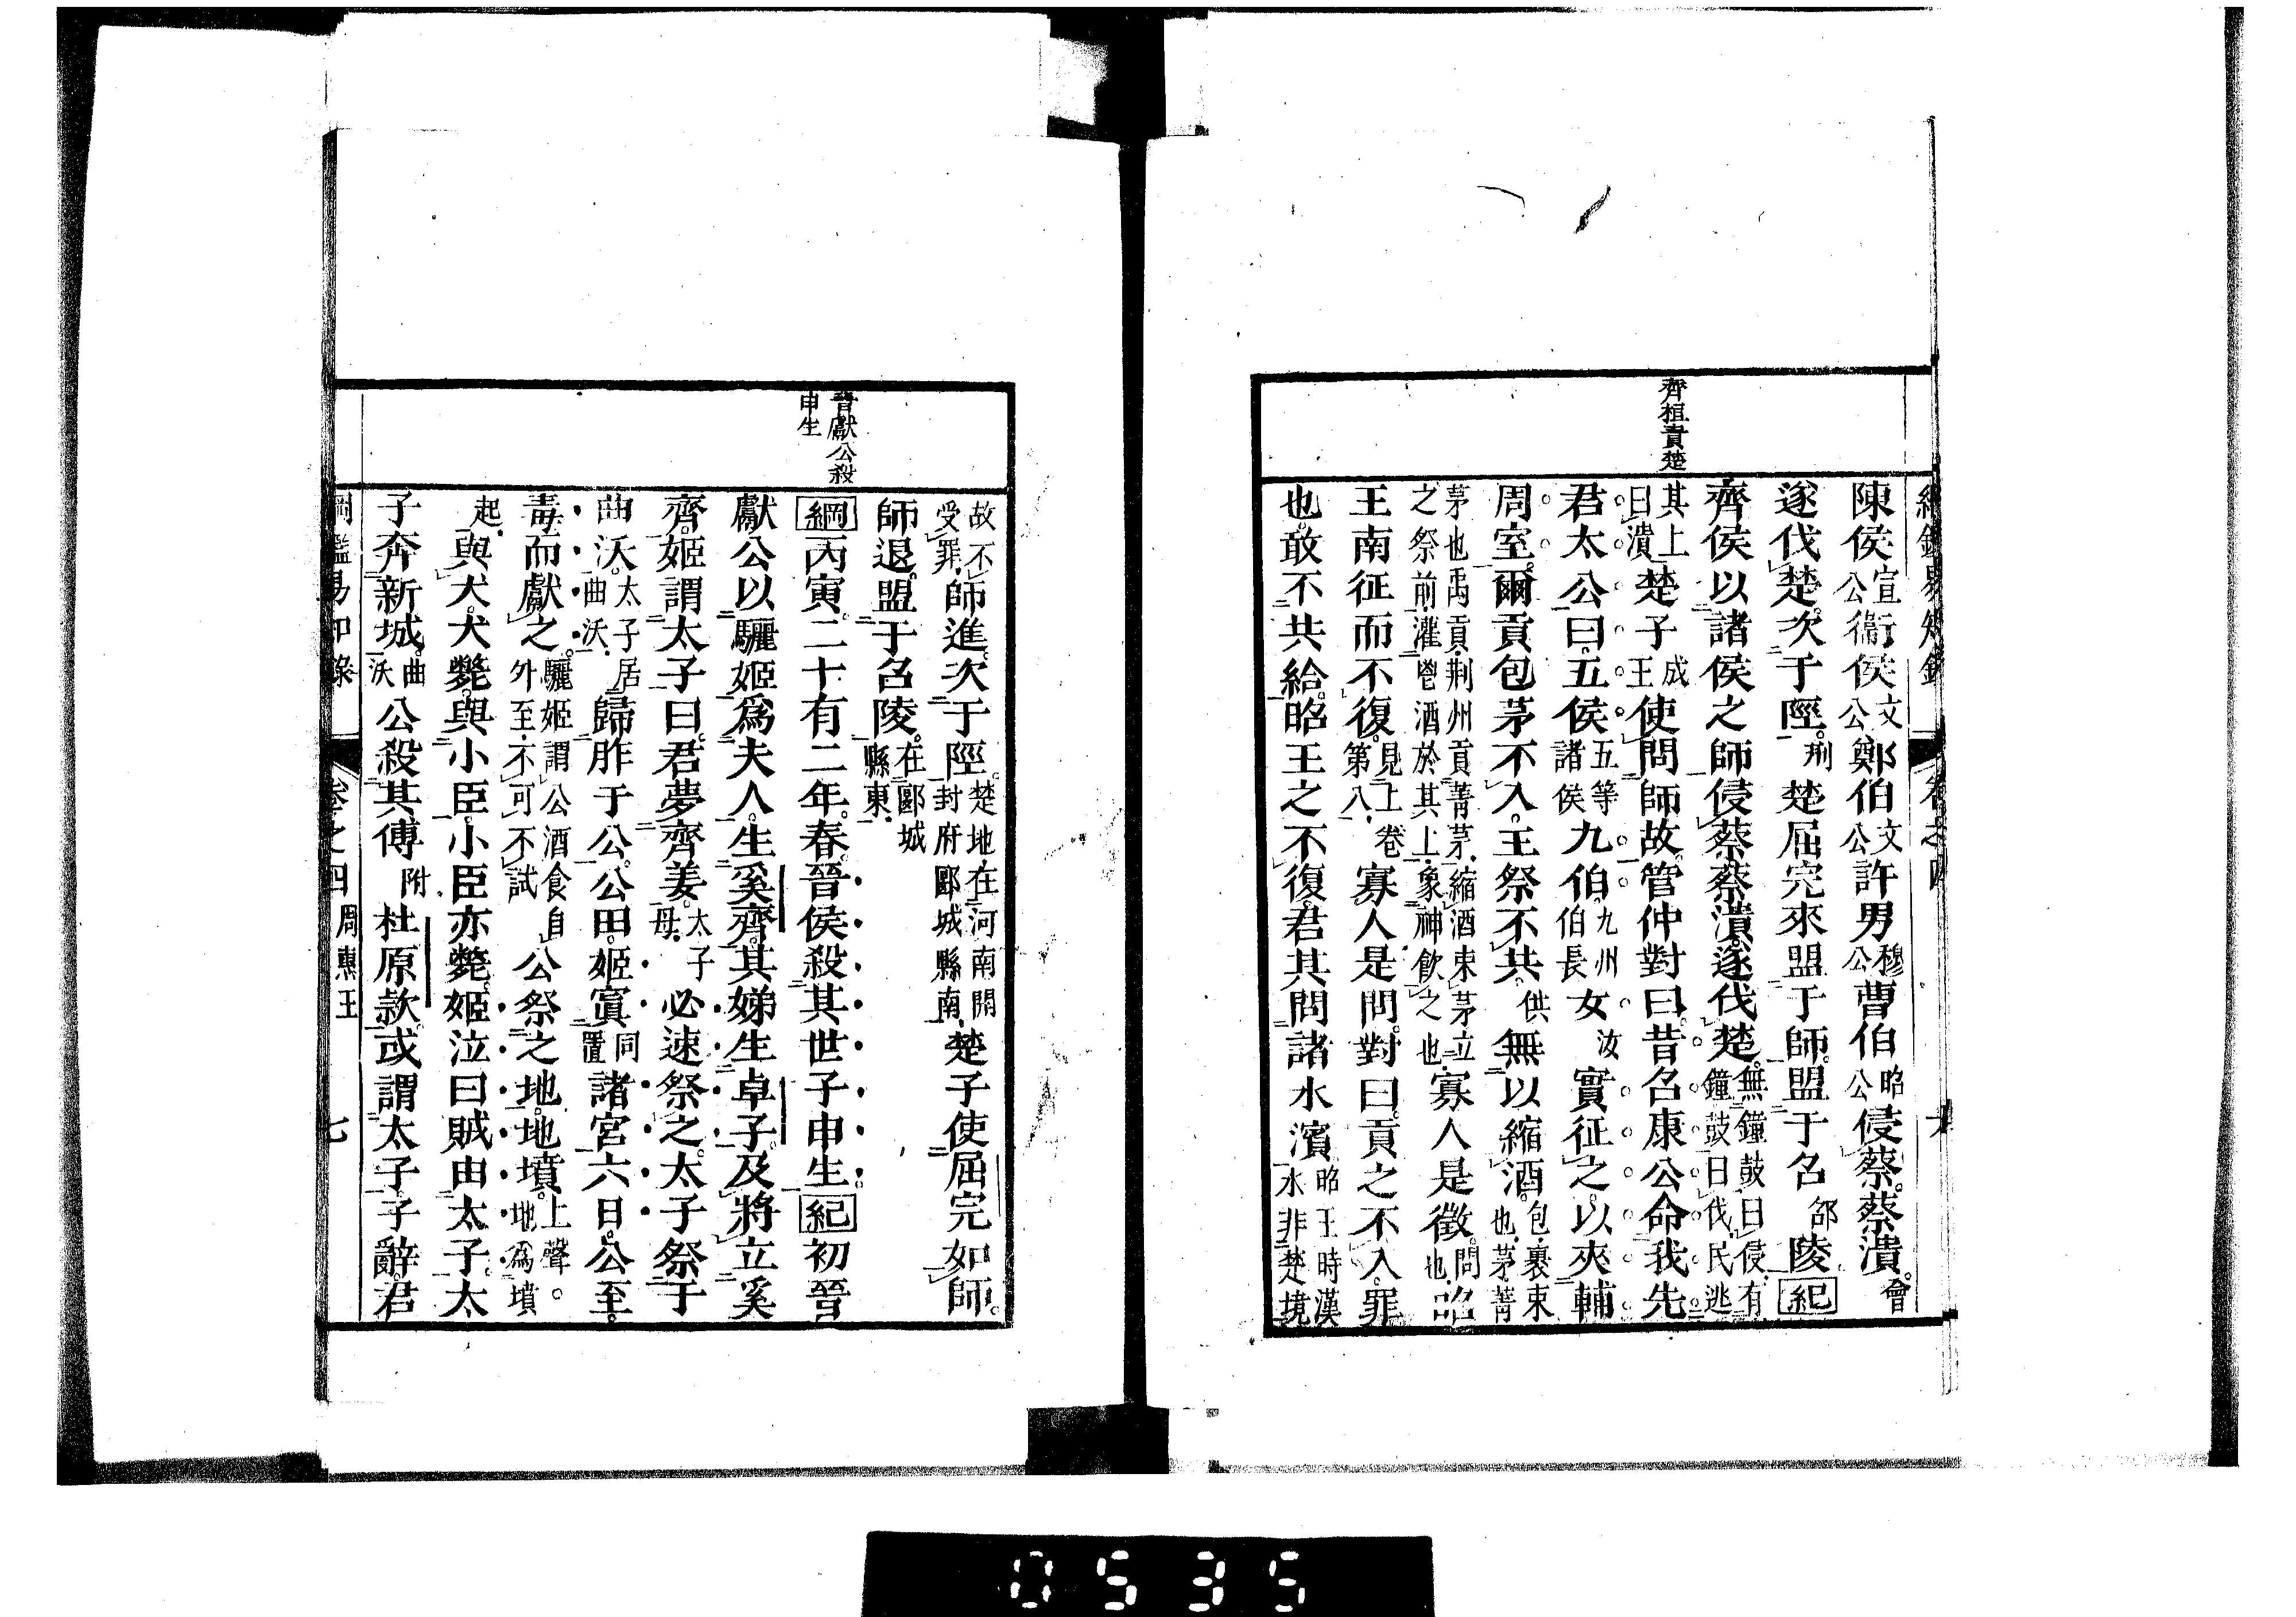 齊桓責楚
陳侯宣公衞侯文公鄭伯文公許男穆公曹伯昭公侵蔡。蔡潰。會
遂伐楚。次于陘。刑楚屈完來盟于師。盟于召邵陵紀
齊侯以諸侯之師侵蔡蔡潰。遂伐楚。無鐘鼓曰侵有鐘鼓曰伐民逃
其上曰潰楚子成王使問師故。管仲對曰。昔召康公命我先
君太公曰。五侯五等諸侯九伯。九州伯長女汝實征之。以夾輔
周室。爾貢包茅不入。王祭不共。供無以縮酒。包裹束也茅菁
茅也禹貢荆州貢菁茅縮酒束茅立之祭前灌鬯酒於其上象神飲之也寡人是徵。問也昭
王南征而不復。見上卷第八寡人是問。對曰。貢之不入。罪
也。敢不共給。昭王之不復。君其問諸水濱昭王時漢水非楚境
晉獻公殺
申生
故不受罪師進。次于陘。楚地在河南開封府郾城縣南楚子使屈完如師。
師退。盟于召陵。在郾城縣東
綱丙寅。二十有二年。春。晉侯殺其世子申生。紀初晉
獻公以驪姬爲夫人。生奚齊。其娣生卓子。及將立奚
齊。姬謂太子曰。君夢齊姜。太子母必速祭之。太子祭于
曲沃。太子居曲沃歸胙于公。公田。姬寘同置諸宮六日。公至。
毒而獻之。驪姬謂公酒食自外至不可不試公祭之地。地墳。上聲。地爲墳
起與犬。犬斃。與小臣。小臣亦斃。姬泣曰賊由太子。太
子奔新城。曲沃公殺其傅附杜原款。或謂太子。子辭。君
綱鑑易知錄 卷之四 周惠王 七